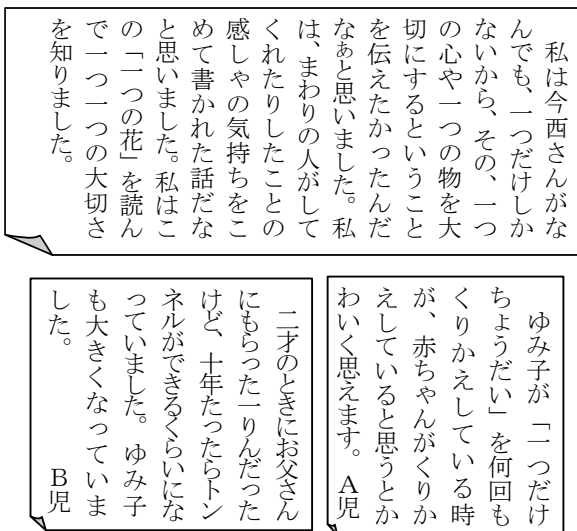 私は今西さんがな
んでも、一つだけしか
ないから、その、一つ
の心や一つの物を大
切にするということ
を伝えたかったんだ
なぁと思いました。私
は、まわりの人がして
くれたりしたことの
感しゃの気持ちをこ
めて書かれた話だな
と思いました。私はこ
の「一つの花」を読ん
で一つ一つの大切さ
を知りました。
ゆみ子が「一つだけ
ちょうだい」を何回も
くりかえしている時
が、赤ちゃんがくりか
えしていると思うとか
わいく思えます。A児
二才のときにお父さん
にもらった一りんだった
けど、十年たったらトン
ネルができるくらいにな
っていました。ゆみ子
も大きくなっていま
した。B児